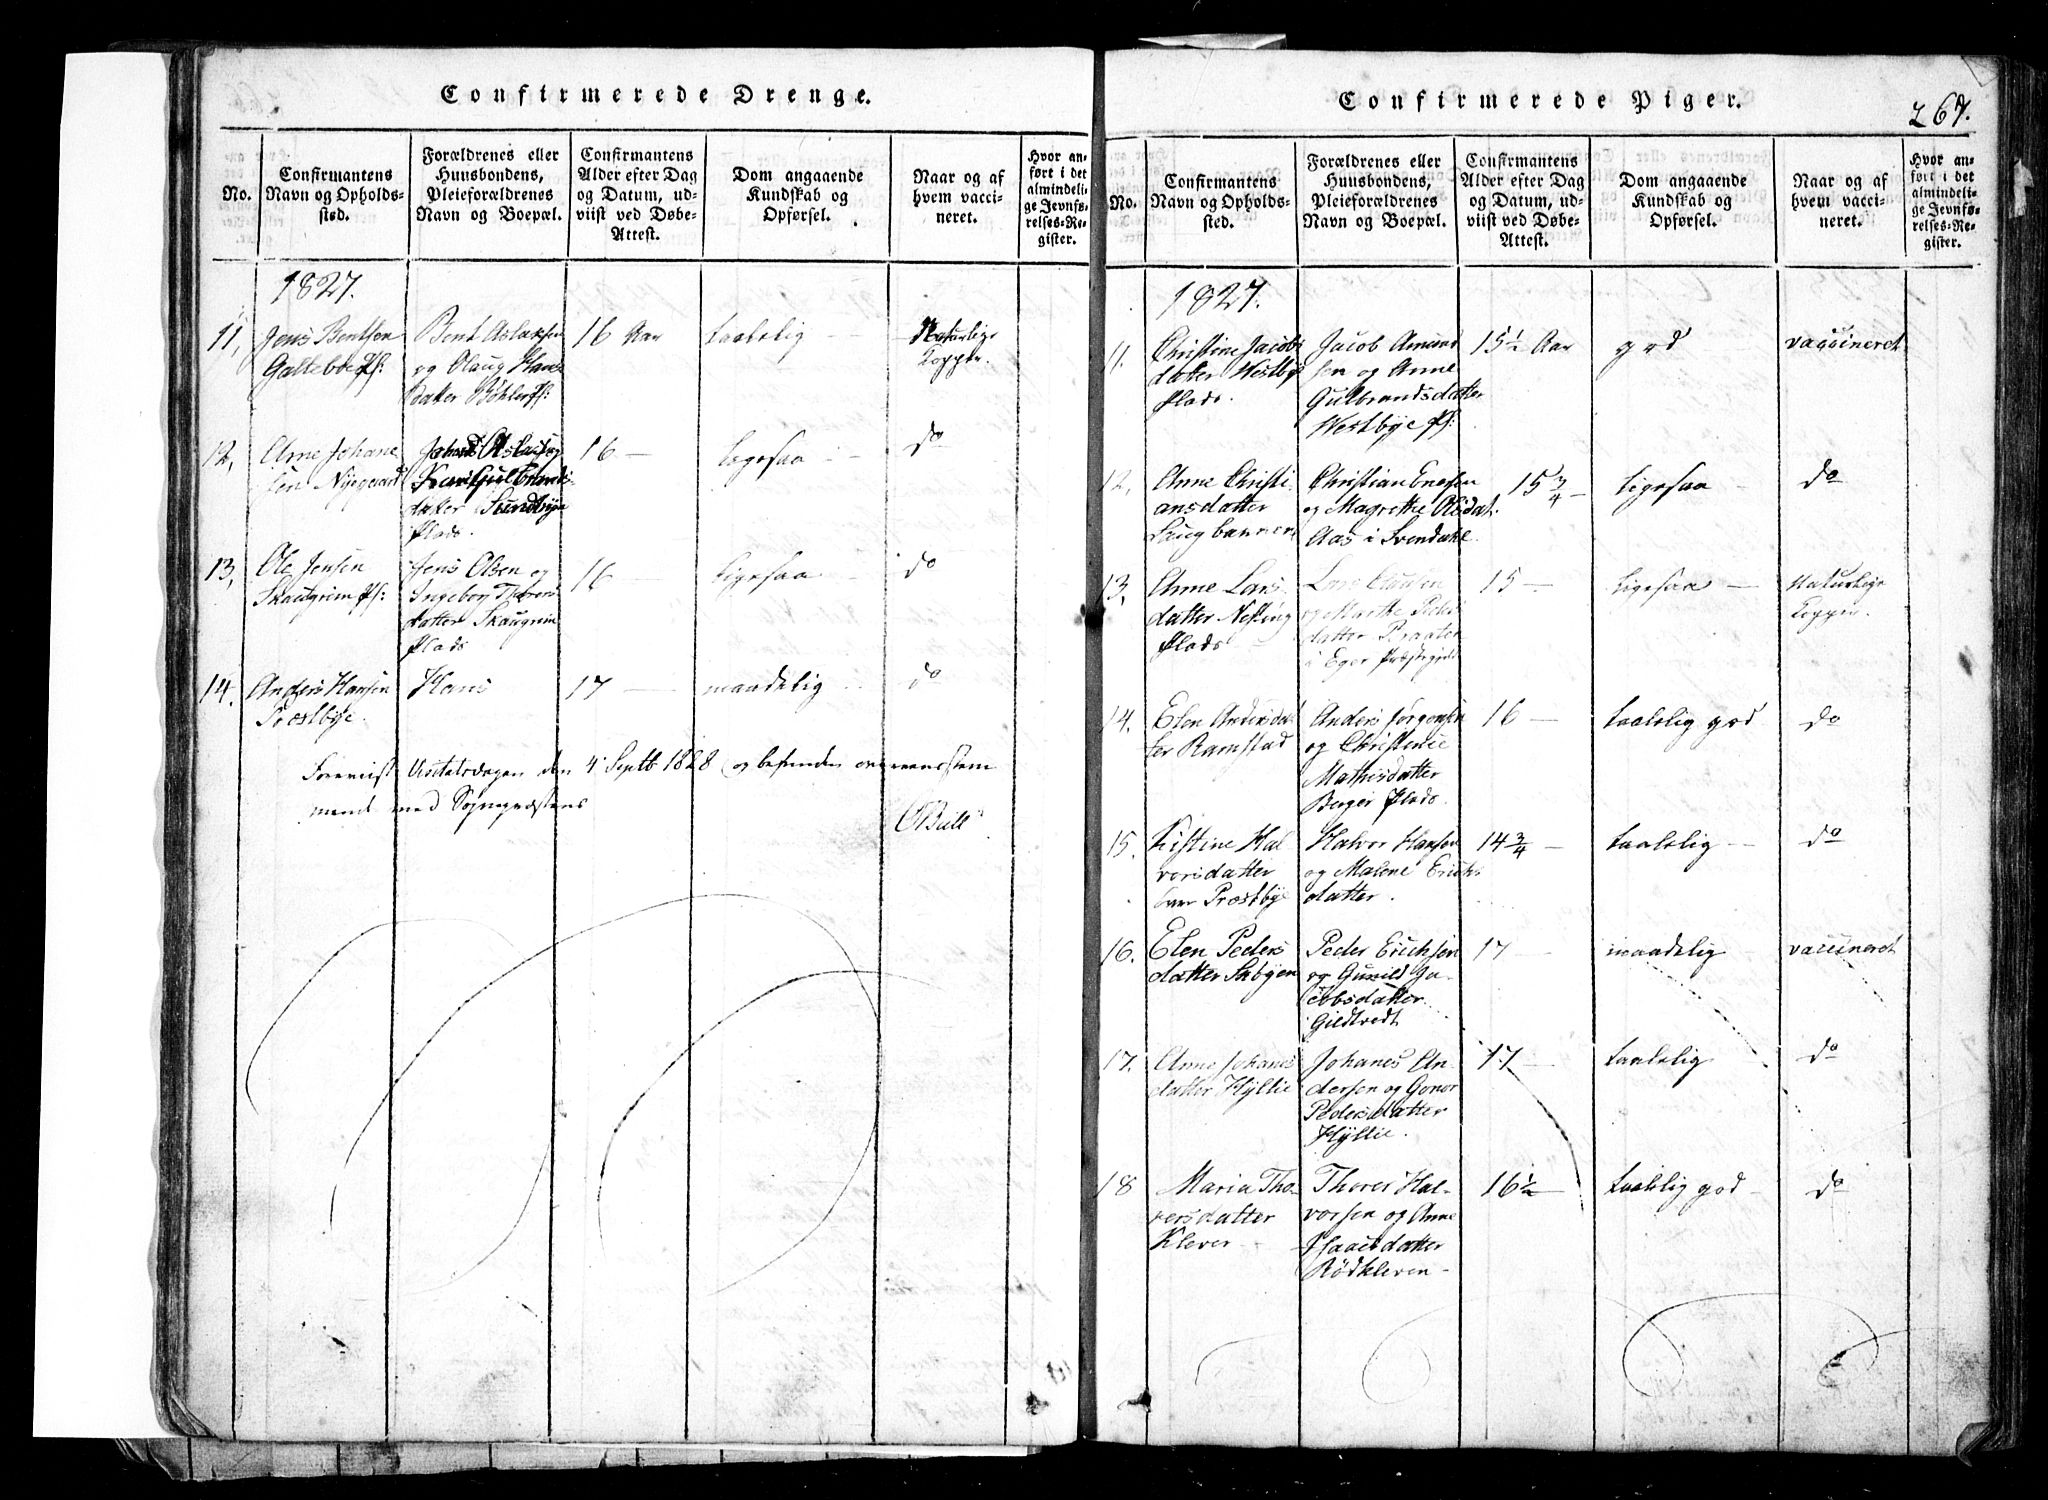 Confirmerede Drenge.
No.
Confirmantens
Navn og Opholds-
sted.
Forældrenes eller
Huusbondens,
Pleieforældrenes
Navn og Boepæl.
Confirmantens
Alder efter Dag
og Datum, ud-
viist ved Døbe-
Attest.
Dom angaaende
Kundskab og
Opførsel.
Naar og af
hvem vacci-
neret.
Hvor an-
ført i det
almindeli-
ge Jevnfø-
relses-Re-
gister.
1827.
11,
Jens Bentsen
Galtebøe Pl:
Bent Aslaksen
og Olaug Hans
datter Böhler Pl:
16 Aar
taalelig
Naturlige
Kopper
12,
Arne Johane
sen Nyegaard
Gulbrands
datter Sundbye
Plads.
16 —
ligesaa
do
13,
Ole Jensen
Skaugrim Pl:
Jens Olsen og
Ingebor Thores
datter Skaugrim
Plads
16 —
ligesaa
do
14.
Anders Hansen
Præstbye.
Hans
17 —
maadelig
do
Foreviist Visitatsdagen den 4 Septb 1828 og befunden overeensstem
mende med Sognepræstens
Bull
Confirmerede Piger.
267.
No.
Confirmantens
Navn og Opholds-
sted.
Forældrenes eller
Huusbondens,
Pleieforældrenes
Navn og Boepæl.
Confirmantens
Alder efter Dag
og Datum, ud-
viist ved Døbe-
Attest.
Dom angaaende
Kundskab og
Opførsel.
Naar og af
hvem vacci-
neret.
Hvor an-
ført i det
almindeli-
ge Jevnfø-
relses-Re-
gister.
1827.
11.
Christine Jacobs
datter Westby
Plads.
Jacob Amund
sen og Anne
Gulbrandsdatter
Westbye Pl:
15½ Aar
god
vaccineret
12,
Anne Christi
ansdatter
Christian Enersen
og Magrethe Olsdat.
Aas i Svendahl
15¾ —
ligesaa
do
13,
Anne Lars
datter Nesting
Plads
Lars
og Marthe Peders
datter Braaten
i Eger Præstegjeld
15 —
ligesaa —
Naturlige
Kopper.
14.
Elen Andersdat
ter Ramstad
Anders Jörgensen
og Christence
Mathisdatter
Berger Plads.
16 —
taalelig god
do
15.
Kirstine Hal
vorsdatter
Præstbye
Halvor Hansen
og Malene Erichs
datter.
14¾ —
taalelig —
do
16.
Elen Peders
datter Sæbyen
Peder Erichsen
og Gunild Ja-
cobsdatter
Gildtvedt
17 —
maadelig
vaccineret
17.
Anne Johanes
datter Hyllie
Johanes An-
dersen og Gonor
Pedersdatter
Hyllie.
17 —
taalelig
do
18
Maria Tho-
versdatter
Klever —
Thover Hal-
vorsen og Anne
Isaacsdatter
Rödkleven —
16½ —
taalelig god —
do